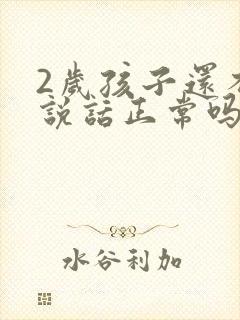 2歲孩子還
說話正常嗎
水谷利加